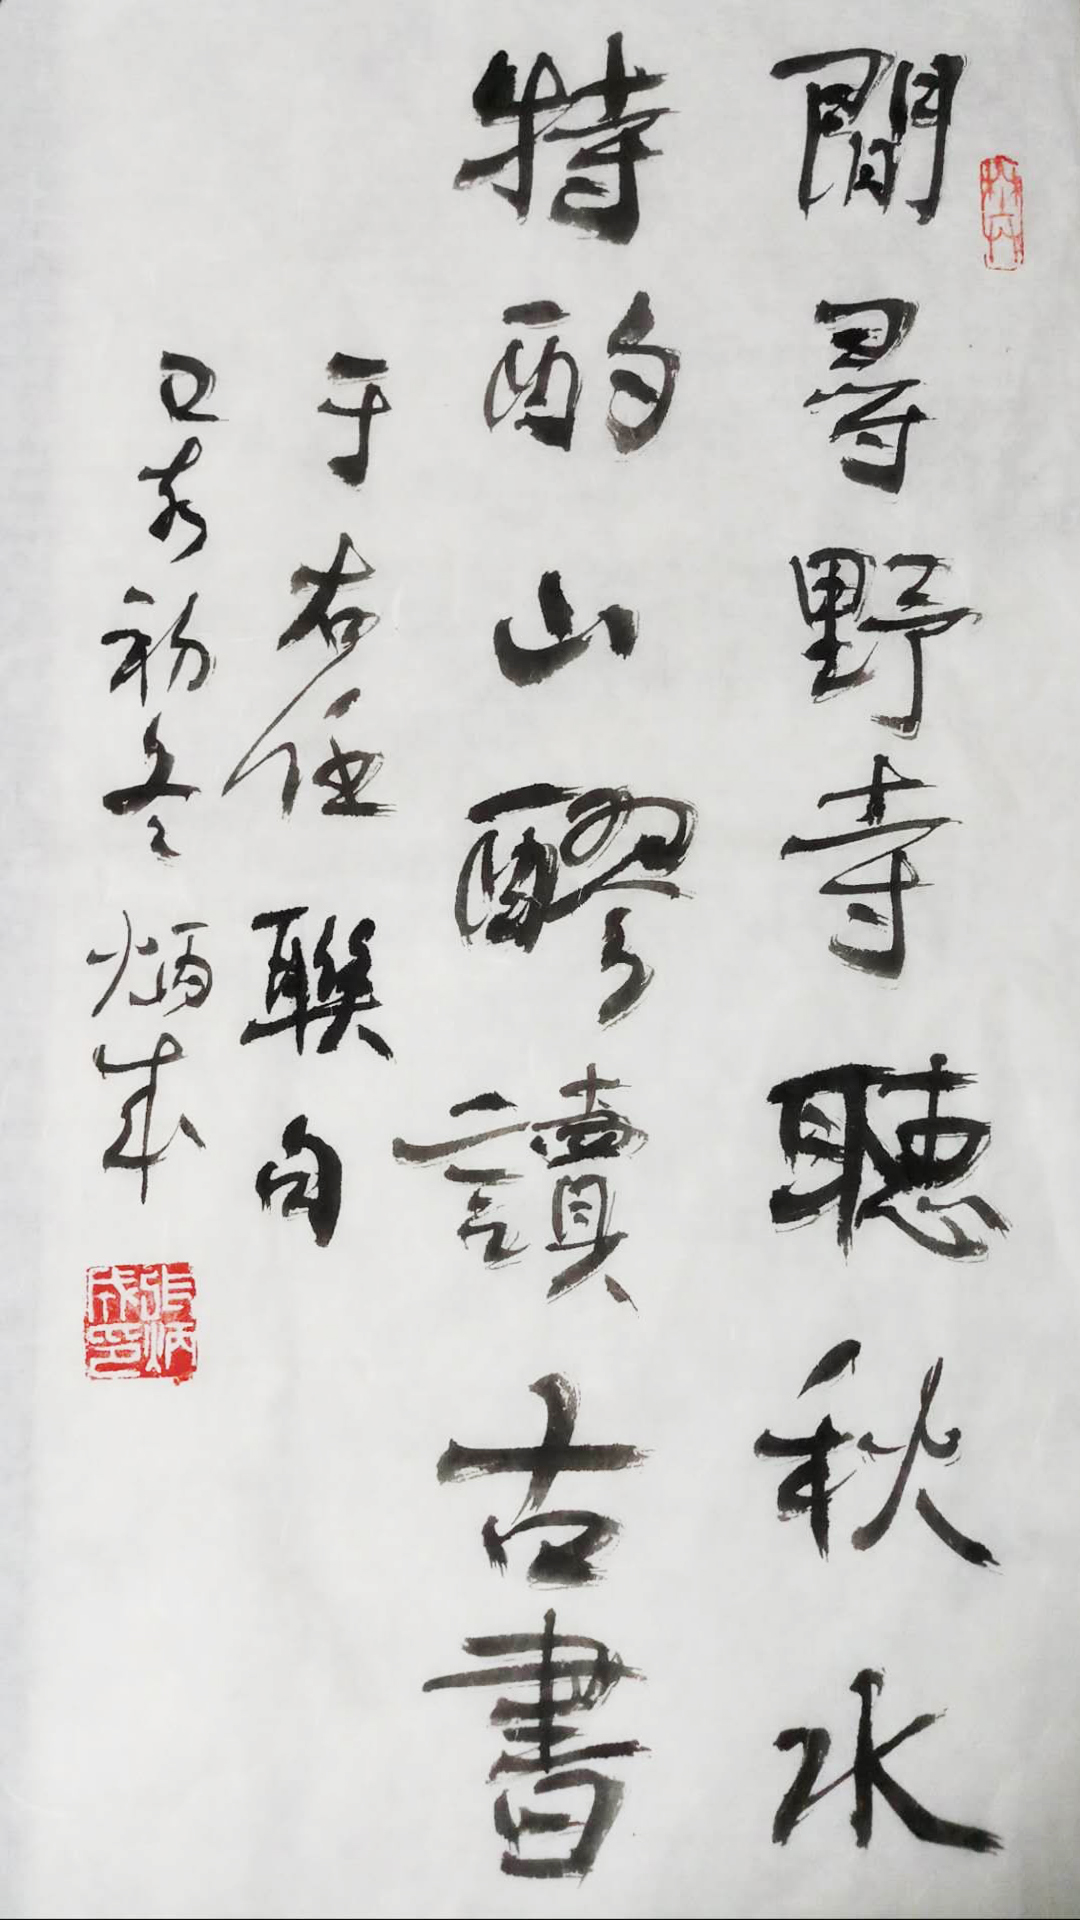 間尋野寺聽秋水
特酌山醪讀古書
于右任聯句
己亥初冬炳成
張炳成印